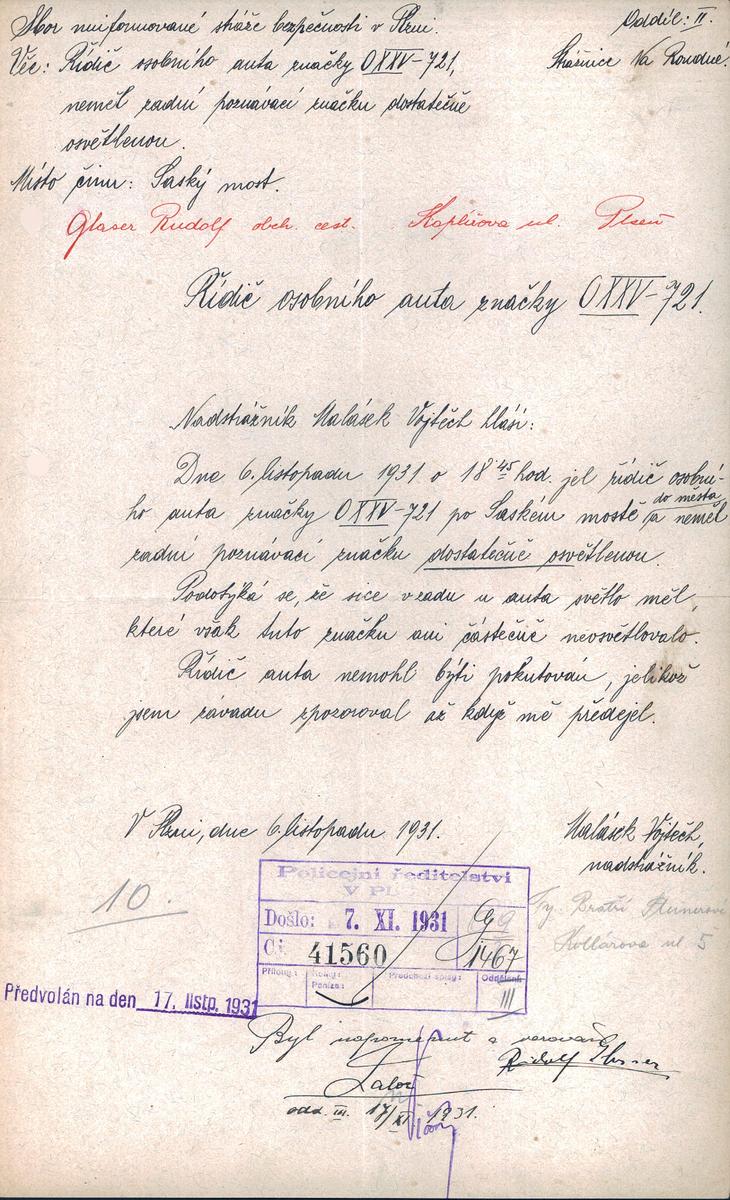 Sbor uniformované stráže bezpečnosti v Plzni.
Oddíl: II.
Věc: Řidič osobního auta značky O XXV-721,
Strážnice Na Roudné.
neměl zadní poznávací značku dostatečně
osvětlenou.
Místo činu: Saský most.
Glaser Rudolf obch. cest. Koplířova ul. Plzeň
Řidič osobního auta značky O XXV-721.
Nadstrážník Malásek Vojtěch hlásí:
Dne 6. listopadu 1931 o 18 45 hod. jel řidič osobní-
ho auta značky O XXV-721 po Saském mostě do města a neměl
zadní poznávací značku dostatečně osvětlenou.
Podotýká se, že sice vzadu u auta světlo měl,
které však tuto značku ani částečně neosvětlovalo.
Řidič auta nemohl býti pokutován, jelikož
jsem závadu zpozoroval až když mě předejel.
V Plzni, dne 6. listopadu 1931.
Malásek Vojtěch,
nadstrážník.
10.
Policejní ředitelství
V PL
Došlo: 7. XI. 1931
Č.j. 41560
1467
Příloh: Kolky: Peníze: Předchozí spisy: Oddělení:
III
Fy. Bratří
Kollárova ul 5
Předvolán na den 17. listp. 1931
Byl napomenut a varován
Rudolf Glaser
odd. III. 17/XI 1931.